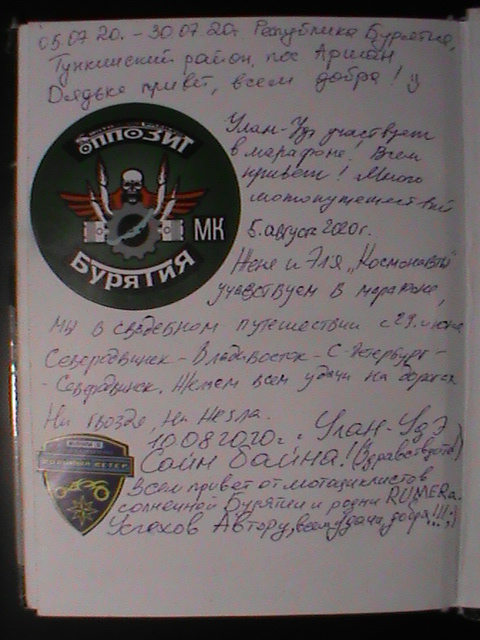 05.07 20. - 30.07 20г. Республика Бурятия,
Тункинский район, пос Аршан
Дядьке привет, всем добра!
ОППОЗИТ
МК
БУРЯТИЯ
Улан-Удэ участвует
в марафоне! Всем
привет! Много
мотопутешествий
5. августа 2020г.
Женя и Эля „Космонавты"
учавствуем в марафоне,
Мы в свадебном путешествии с 29. июня
Северодвинск - Владивосток - С-Петербург -
- Северодвинск. Желаем всем удачи на дорогах
Ни гвоздя, ни жезла.
10.08 2020г. г. Улан-Удэ
Сайн байна! (Здравствуйте)
Всем привет от мотоциклистов
солнечной Бурятии и родни RUMERа.
Успехов Автору, всем удачи, добра!!! ;)